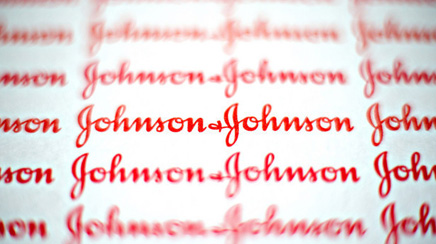 Johnson&Johnson
nson Johnson&Johnson John
nson Johnson&Johnson John
son Johnson&Johnson John
on Johnson&Johnson Joh